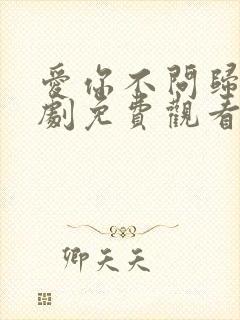 愛你不問歸
劇免費觀看
卿天天